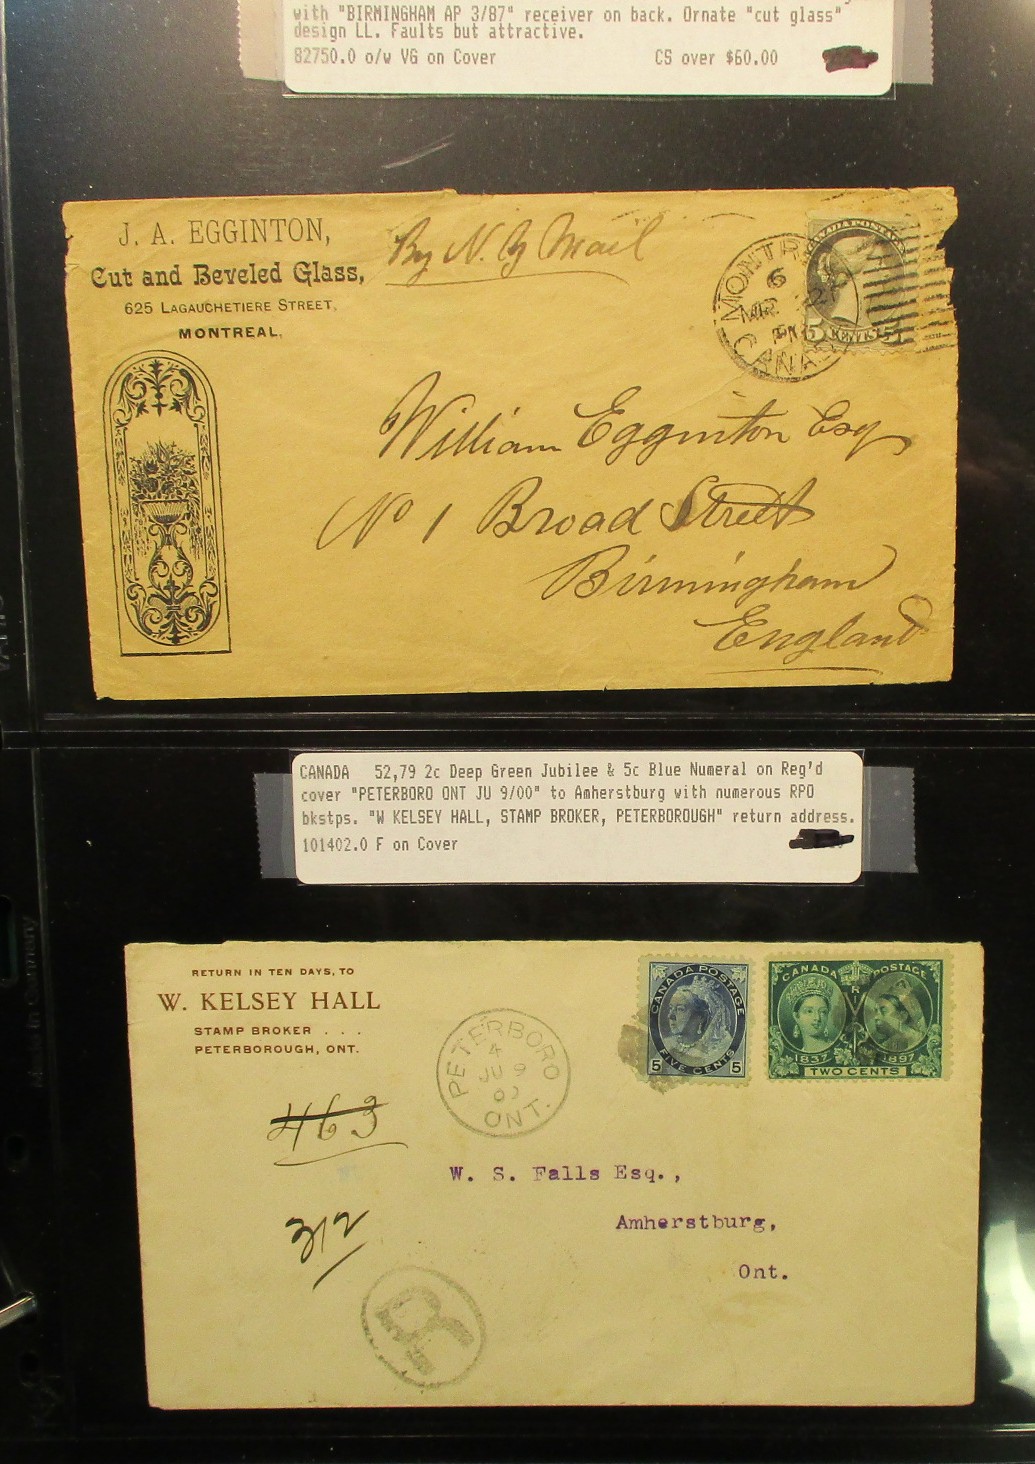 with "BIRMINGHAM AP 3/87" receiver on back. Ornate "cut glass"
design LL. Faults but attractive.
82750.0 o/w VG on Cover CS over $60.00
J. A. EGGINTON,
Cut and Beveled Glass,
625 LAGAUCHETIERE STREET,
MONTREAL.
By N. Y Mail
MONTR
6
PM
CANADA
CANADA POSTAGE
5 CENTS 5
William Egginton Esq
No 1 Broad Street
Birmingham
England
CANADA 52,79 2c Deep Green Jubilee & 5c Blue Numeral on Reg'd
cover "PETERBORO ONT JU 9/00" to Amherstburg with numerous RPO
bkstps. "W KELSEY HALL, STAMP BROKER, PETERBOROUGH" return address.
101402.0 F on Cover
RETURN IN TEN DAYS, TO
W. KELSEY HALL
STAMP BROKER . . .
PETERBOROUGH, ONT.
PETERBORO
4
JU 9
00
ONT.
CANADA POSTAGE
5 FIVE CENTS 5
CANADA POSTAGE
V R I
1837 1897
TWO CENTS
463
312
W. S. Falls Esq.,
Amherstburg,
Ont.
R
Made in Germany